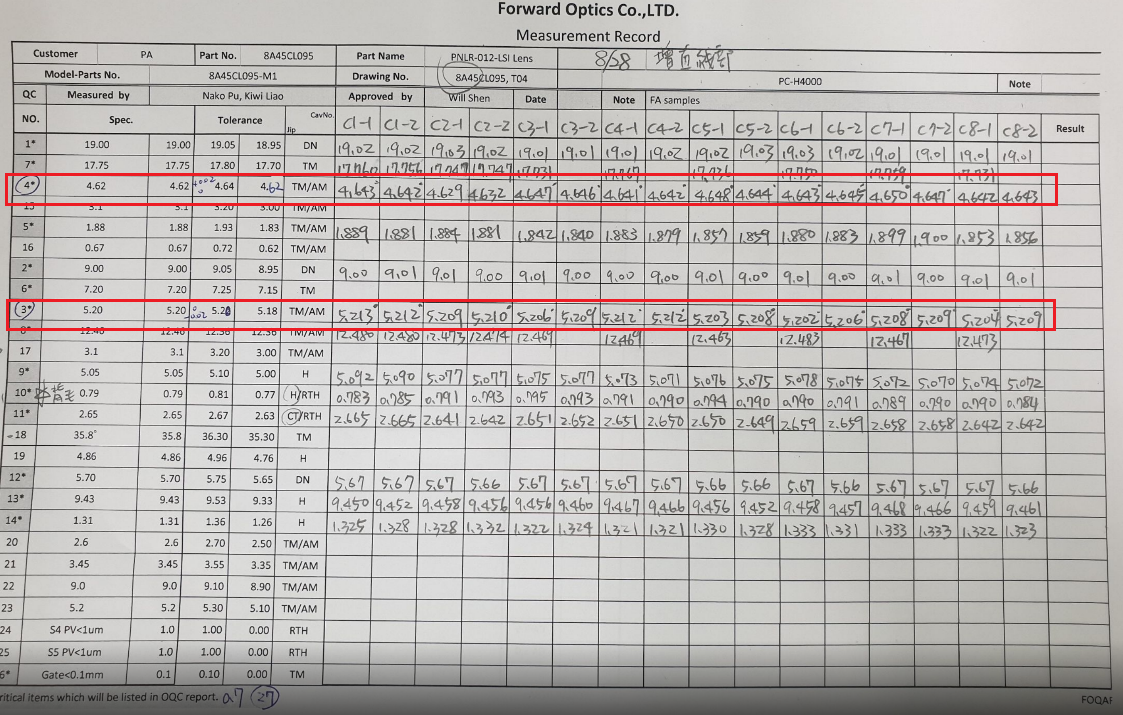 Forward Optics Co.,LTD.
Measurement Record
Customer PA Part No. 8A45CL095 Part Name PNLR-012-LSI Lens 8/28
Model-Parts No. 8A45CL095-M1 Drawing No. 8A45CL095, T04 PC-H4000 Note
QC Measured by Nako Pu, Kiwi Liao Approved by Will Shen Date Note FA samples
NO. Spec. Tolerance CavNo. Jip C1-1 C1-2 C2-1 C2-2 C3-1 C3-2 C4-1 C4-2 C5-1 C5-2 C6-1 C6-2 C7-1 C7-2 C8-1 C8-2 Result
1* 19.00 19.00 19.05 18.95 DN 19.02 19.02 19.03 19.02 19.01 19.01 19.01 19.02 19.02 19.03 19.03 19.02 19.01 19.01 19.01 19.01
7* 17.75 17.75 17.80 17.70 TM 17.760 17.756 17.747 17.747 17.731
4* 4.62 4.62 +0.02 0 4.64 4.62 TM/AM 4.643 4.642 4.629 4.632 4.647 4.646 4.641 4.642 4.648 4.644 4.643 4.645 4.650 4.647 4.642 4.643
3.1 3.1 3.20 3.00 TM/AM
5* 1.88 1.88 1.93 1.83 TM/AM 1.889 1.881 1.884 1.881 1.842 1.840 1.883 1.879 1.857 1.859 1.880 1.883 1.899 1.900 1.853 1.856
16 0.67 0.67 0.72 0.62 TM/AM
2* 9.00 9.00 9.05 8.95 DN 9.00 9.01 9.01 9.00 9.01 9.00 9.00 9.00 9.01 9.00 9.01 9.00 9.01 9.00 9.01 9.01
6* 7.20 7.20 7.25 7.15 TM
3* 5.20 5.20 0 -0.02 5.20 5.18 TM/AM 5.213 5.212 5.209 5.210 5.206 5.209 5.212 5.212 5.203 5.208 5.202 5.206 5.208 5.209 5.204 5.209
8* 12.46 12.46 12.56 12.36 TM/AM 12.480 12.480 12.473 12.474 12.469 12.469 12.463 12.483 12.467 12.473
17 3.1 3.1 3.20 3.00 TM/AM
9* 5.05 5.05 5.10 5.00 H 5.092 5.090 5.077 5.077 5.075 5.077 5.073 5.071 5.076 5.075 5.078 5.075 5.072 5.070 5.074 5.072
10* 0.79 0.79 0.81 0.77 H/RTH 0.783 0.785 0.791 0.793 0.795 0.793 0.791 0.790 0.794 0.790 0.790 0.791 0.789 0.790 0.790 0.784
11* 2.65 2.65 2.67 2.63 CT/RTH 2.665 2.665 2.641 2.642 2.651 2.652 2.651 2.650 2.650 2.649 2.659 2.659 2.658 2.658 2.642 2.642
18 35.8° 35.8 36.30 35.30 TM
19 4.86 4.86 4.96 4.76 H
12* 5.70 5.70 5.75 5.65 DN 5.67 5.67 5.67 5.66 5.67 5.67 5.67 5.67 5.66 5.66 5.67 5.66 5.67 5.67 5.67 5.66
13* 9.43 9.43 9.53 9.33 H 9.450 9.452 9.458 9.456 9.456 9.460 9.467 9.466 9.456 9.452 9.458 9.457 9.468 9.466 9.459 9.461
14* 1.31 1.31 1.36 1.26 H 1.325 1.328 1.328 1.332 1.322 1.324 1.321 1.321 1.330 1.328 1.333 1.331 1.333 1.333 1.322 1.323
20 2.6 2.6 2.70 2.50 TM/AM
21 3.45 3.45 3.55 3.35 TM/AM
22 9.0 9.0 9.10 8.90 TM/AM
23 5.2 5.2 5.30 5.10 TM/AM
24 S4 PV<1um 1.0 1.00 0.00 RTH
25 S5 PV<1um 1.0 1.00 0.00 RTH
6* Gate<0.1mm 0.1 0.10 0.00 TM
ritical items which will be listed in OQC report. 27 FOQAF